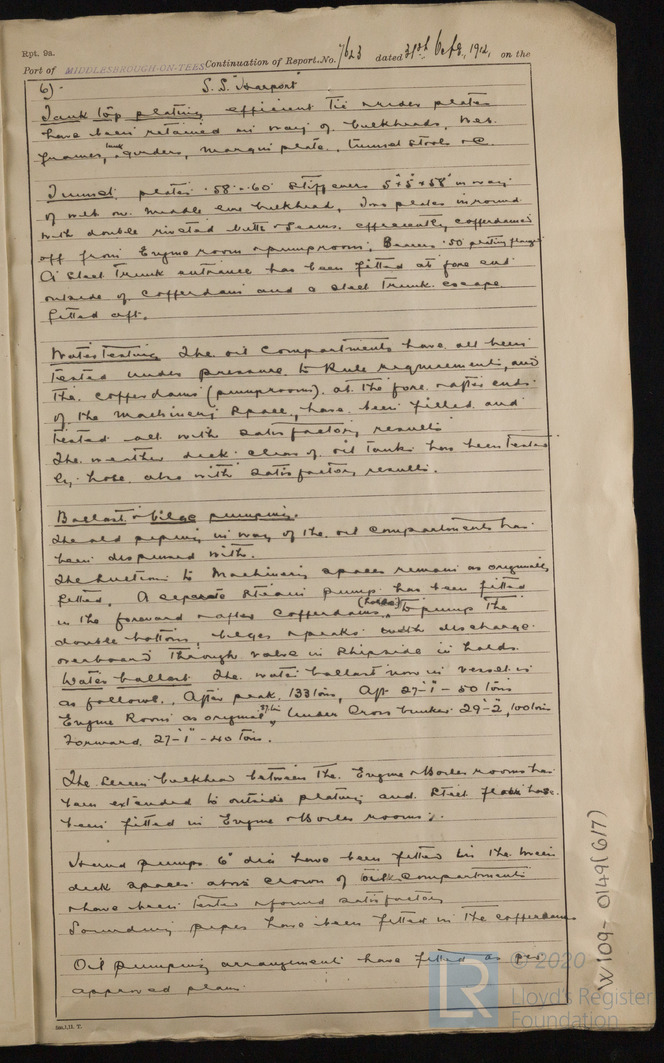 Rpt. 9a.
Port of MIDDLESBROUGH-ON-TEES Continuation of Report No. 7623 dated 31st Octr, 1912, on the
6) S.S. "Harport"
Tank top plating efficient Tie plates
have been retained in way of bulkheads, web
frames, girders, margin plate, tunnel stools &c.
Tunnel plates .58 - .60 Stiffeners 5" x 5" x .58" in way
of web on middle line bulkhead, plates in round
with double riveted butts & seams. efficiently cofferdamed
off from Engine room & pumproom;
A Steel Trunk entrance has been fitted at fore end
outside of Cofferdam and a steel Trunk escape
fitted aft.
Water Testing The oil compartments have all been
tested under pressure to Rule requirements, and
the cofferdams (pumproom) at the fore & after ends
of the machinery space, have been filled and
tested all with satisfactory results
The weather deck clear of oil tanks has been tested
by hose also with satisfactory results.
Ballast & bilge pumping.
The old piping in way of the oil compartments has
been dispensed with.
The suctions to Machinery spaces remain as originally
fitted. A separate steam pump has been fitted
in the forward & after Cofferdams (holds) to pump the
double bottom, bilges & peaks with discharge
overboard through valve in shipside in holds.
Water ballast The water ballast now in vessel is
as follows. After peak 133 tons, Aft 27'-1" - 50 tons
Engine Room as original, Under Cross bunker 29'-2", 100 tons
Forward 27'-1" - 40 tons.
The Screen bulkhead between the Engine & Boiler rooms has
been extended to outside plating and steel flats have
been fitted in Engine & Boiler rooms.
Hand pumps 6" dia have been fitted in the tween
deck spaces above crown of oil compartments
& have been tested & found satisfactory
Sounding pipes have been fitted in the cofferdams
Oil pumping arrangement have fitted as per
approved plan.
W109-0149(6/7)
© 2020
LR
Lloyd's Register
Foundation